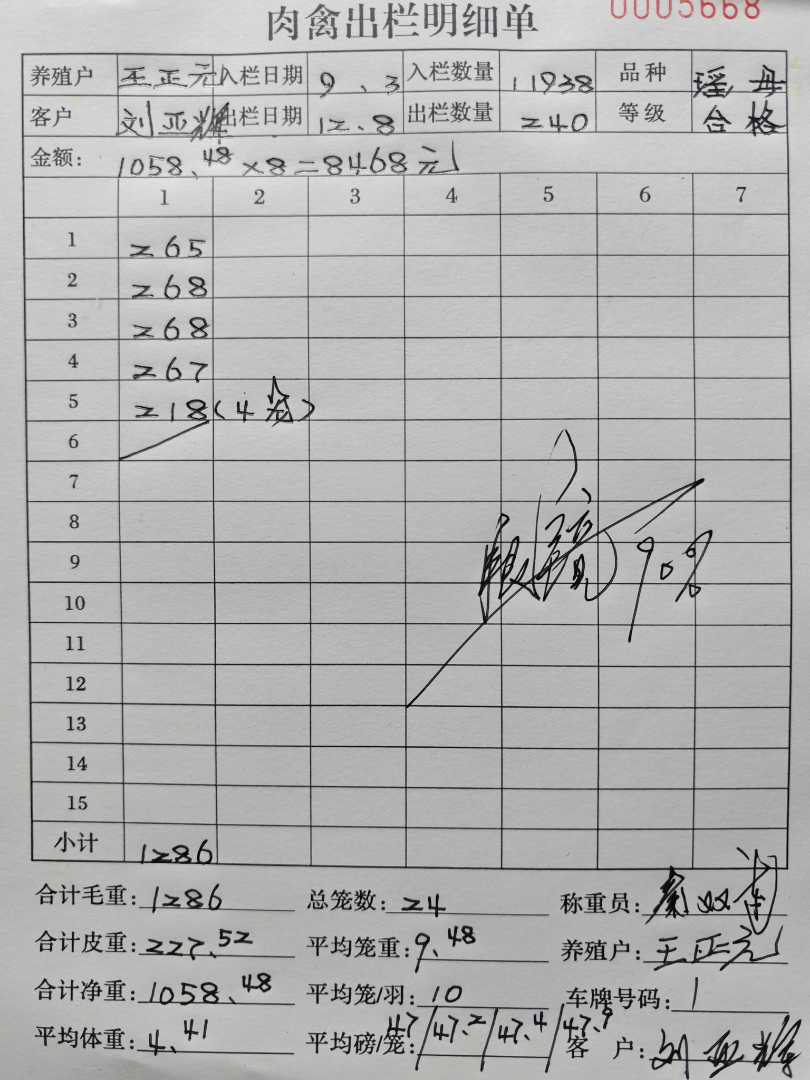 肉禽出栏明细单 0005668
养殖户 王正元 入栏日期 9、3 入栏数量 11938 品种 瑶母
客户 刘亚辉 出栏日期 12、8 出栏数量 240 等级 合格
金额: 1058、48×8=8468元
1 2 3 4 5 6 7
1 265
2 268
3 268
4 267
5 218(4笼)
6
7
8
9 眼镜 90%
10
11
12
13
14
15
小计 1286
合计毛重: 1286 总笼数: 24 称重员:
合计皮重: 227、52 平均笼重: 9、48 养殖户: 王正元
合计净重: 1058、48 平均笼/羽: 10 车牌号码: 1
平均体重: 4、41 平均磅/笼: 47/47、2/47、4/47、9 客户: 刘亚辉